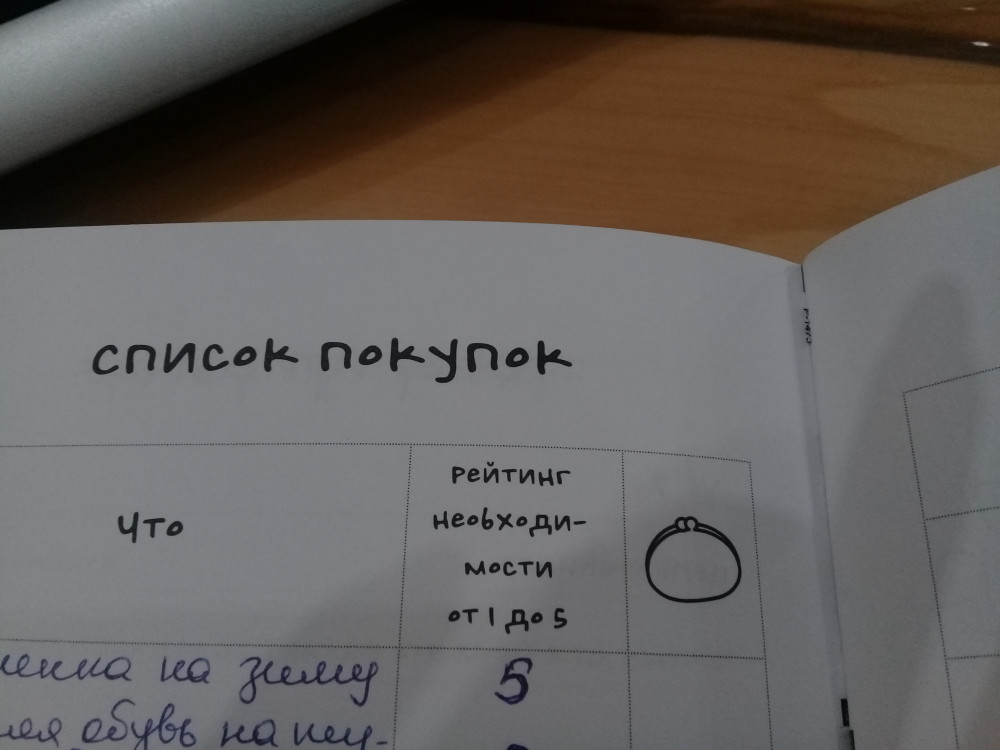 список покупок
что
рейтинг
необходи-
мости
от 1 до 5
на зиму
5
обувь на